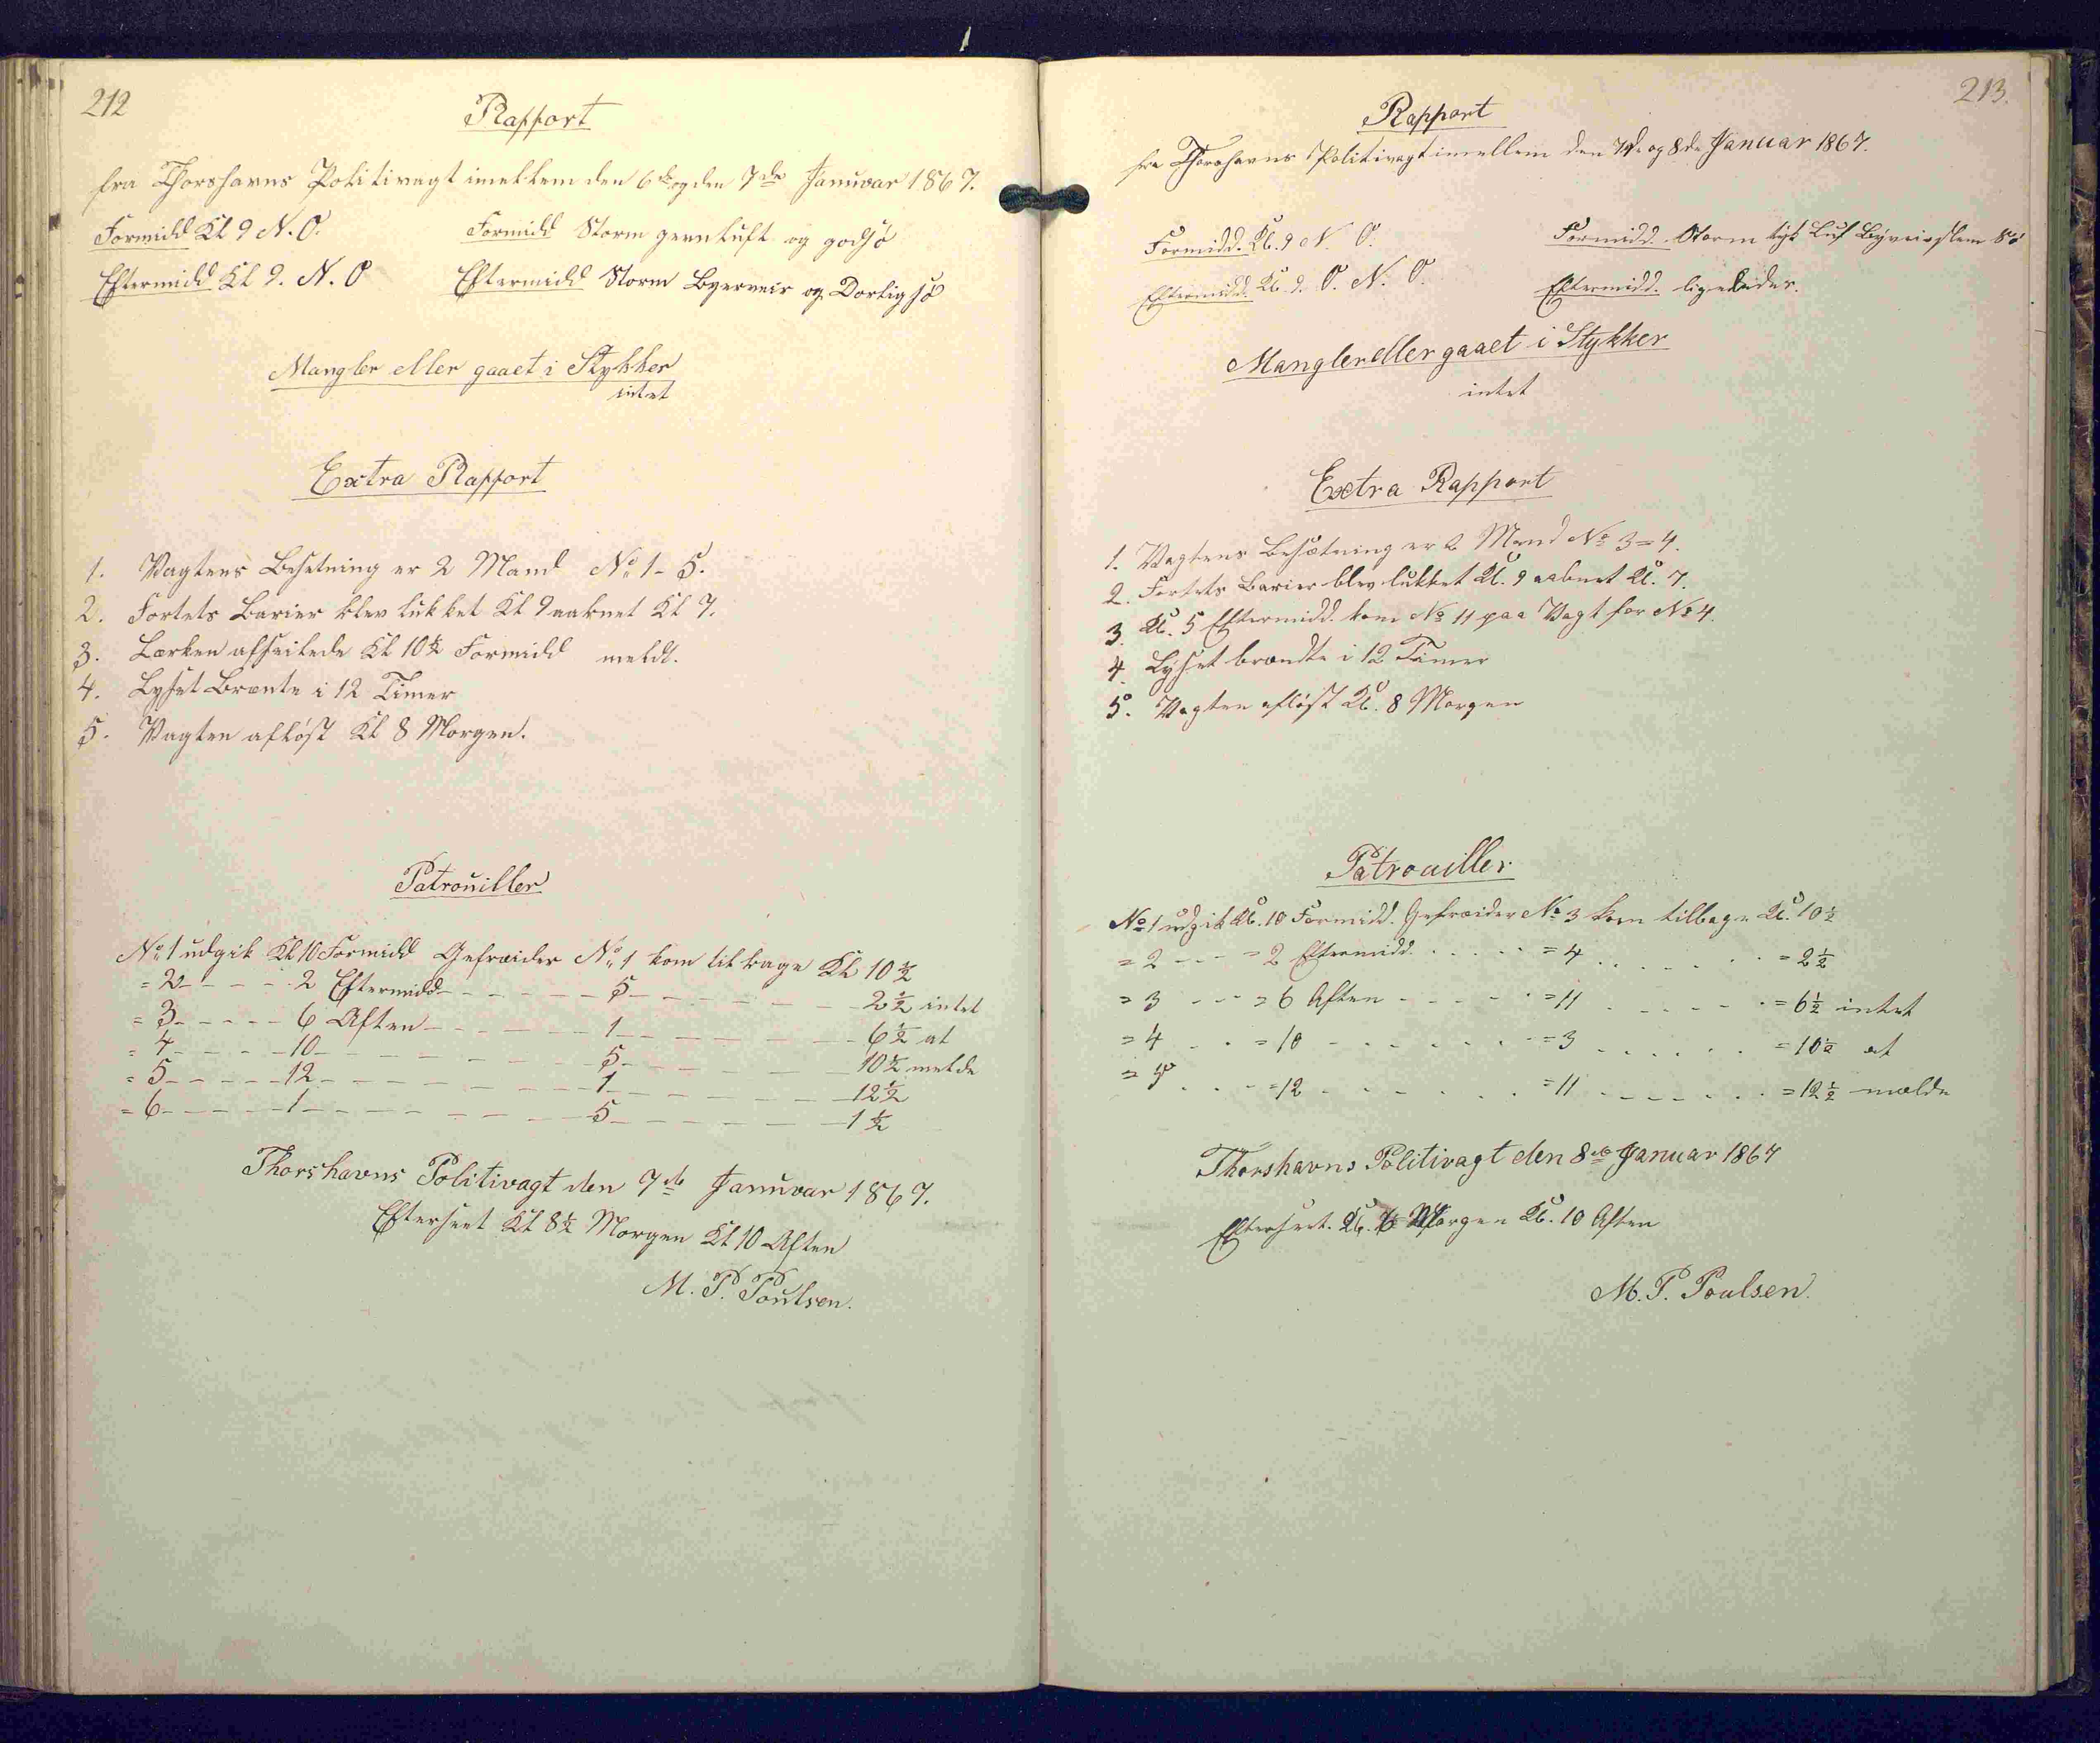 212
Rapport
fra Thorshavns Politivagt imellem den 6te og den 7de Januvar 1867.
Formidd Kl 9 N. O. Formidd Storm greenluft og godsø
Eftermidd Kl 9. N. O Eftermidd Storm Byerveir og Dorligsø
Mangler eller gaaet i Stykker
intet
Extra Rapport
1. Vagtens Besetning er 2 Mand No 1 - 5.
2. Fortets Barier blev lukket Kl 9 aabnet Kl 7.
3. Lærken afseilede Kl 10½ Formidd meldt.
4. Lyset Brænte i 12 Timer
5. Vagten afløst Kl 8 Morgen.
Patrouiller
No 1 udgik Kl 10 Formidd Gefreider No 1 kom tilbage Kl 10½
= 2 - - - - - 2 Eftermidd - - - - - - 5 - - - - - - - - 2½ intet
= 3 - - - - - 6 Aften - - - - - - 1 - - - - - - - - 6½ at
= 4 - - - - - 10 - - - - - - - - 5 - - - - - - - - 10½ melde
= 5 - - - - - 12 - - - - - - - - 1 - - - - - - - - 12½
= 6 - - - - - 1 - - - - - - - - 5 - - - - - - - - 1½
Thorshavns Politivagt den 7de Januvar 1867.
Efterseet Kl 8½ Morgen Kl 10 Aften
M. P. Poulsen.
213.
Rapport
fra Thorshavns Politivagt imellem den 7de og 8de Januar 1867.
Formidd. Kl. 9 N. O. Formidd. Storm tyk Luf Byveir slem Sø
Eftermidd. Kl. 9. O. N. O. Eftermidd. ligeledes.
Mangler eller gaaet i Stykker
intet
Extra Rapport
1. Vagtens Besætning er 2 Mand No 3 = 4.
2. Fortets Barier blev lukket Kl. 9 aabnet Kl. 7.
3. Kl. 5 Eftermidd. kom No 11 paa Vagt for No 4.
4. Lyset brændte i 12 Timer
5. Vagten afløst Kl. 8 Morgen
Patrouiller.
No 1 udgik Kl. 10 Formidd. Gefreider No 3 kom tilbage Kl. 10½
= 2 - - - = 2 Eftermidd. . . . . = 4 . . . . . . = 2½
= 3 - - - = 6 Aften - - - - = 11 . . . . . = 6½ intet
= 4 . . = 10 - - - - - - = 3 . . . . . . = 10½ at
= 5 . . . = 12 . - - . . . = 11 - - - - . . = 12½ melde
Thorshavns Politivagt den 8de Januar 1867
Efterseet. Kl. Morgen Kl. 10 Aften
M. P. Poulsen.